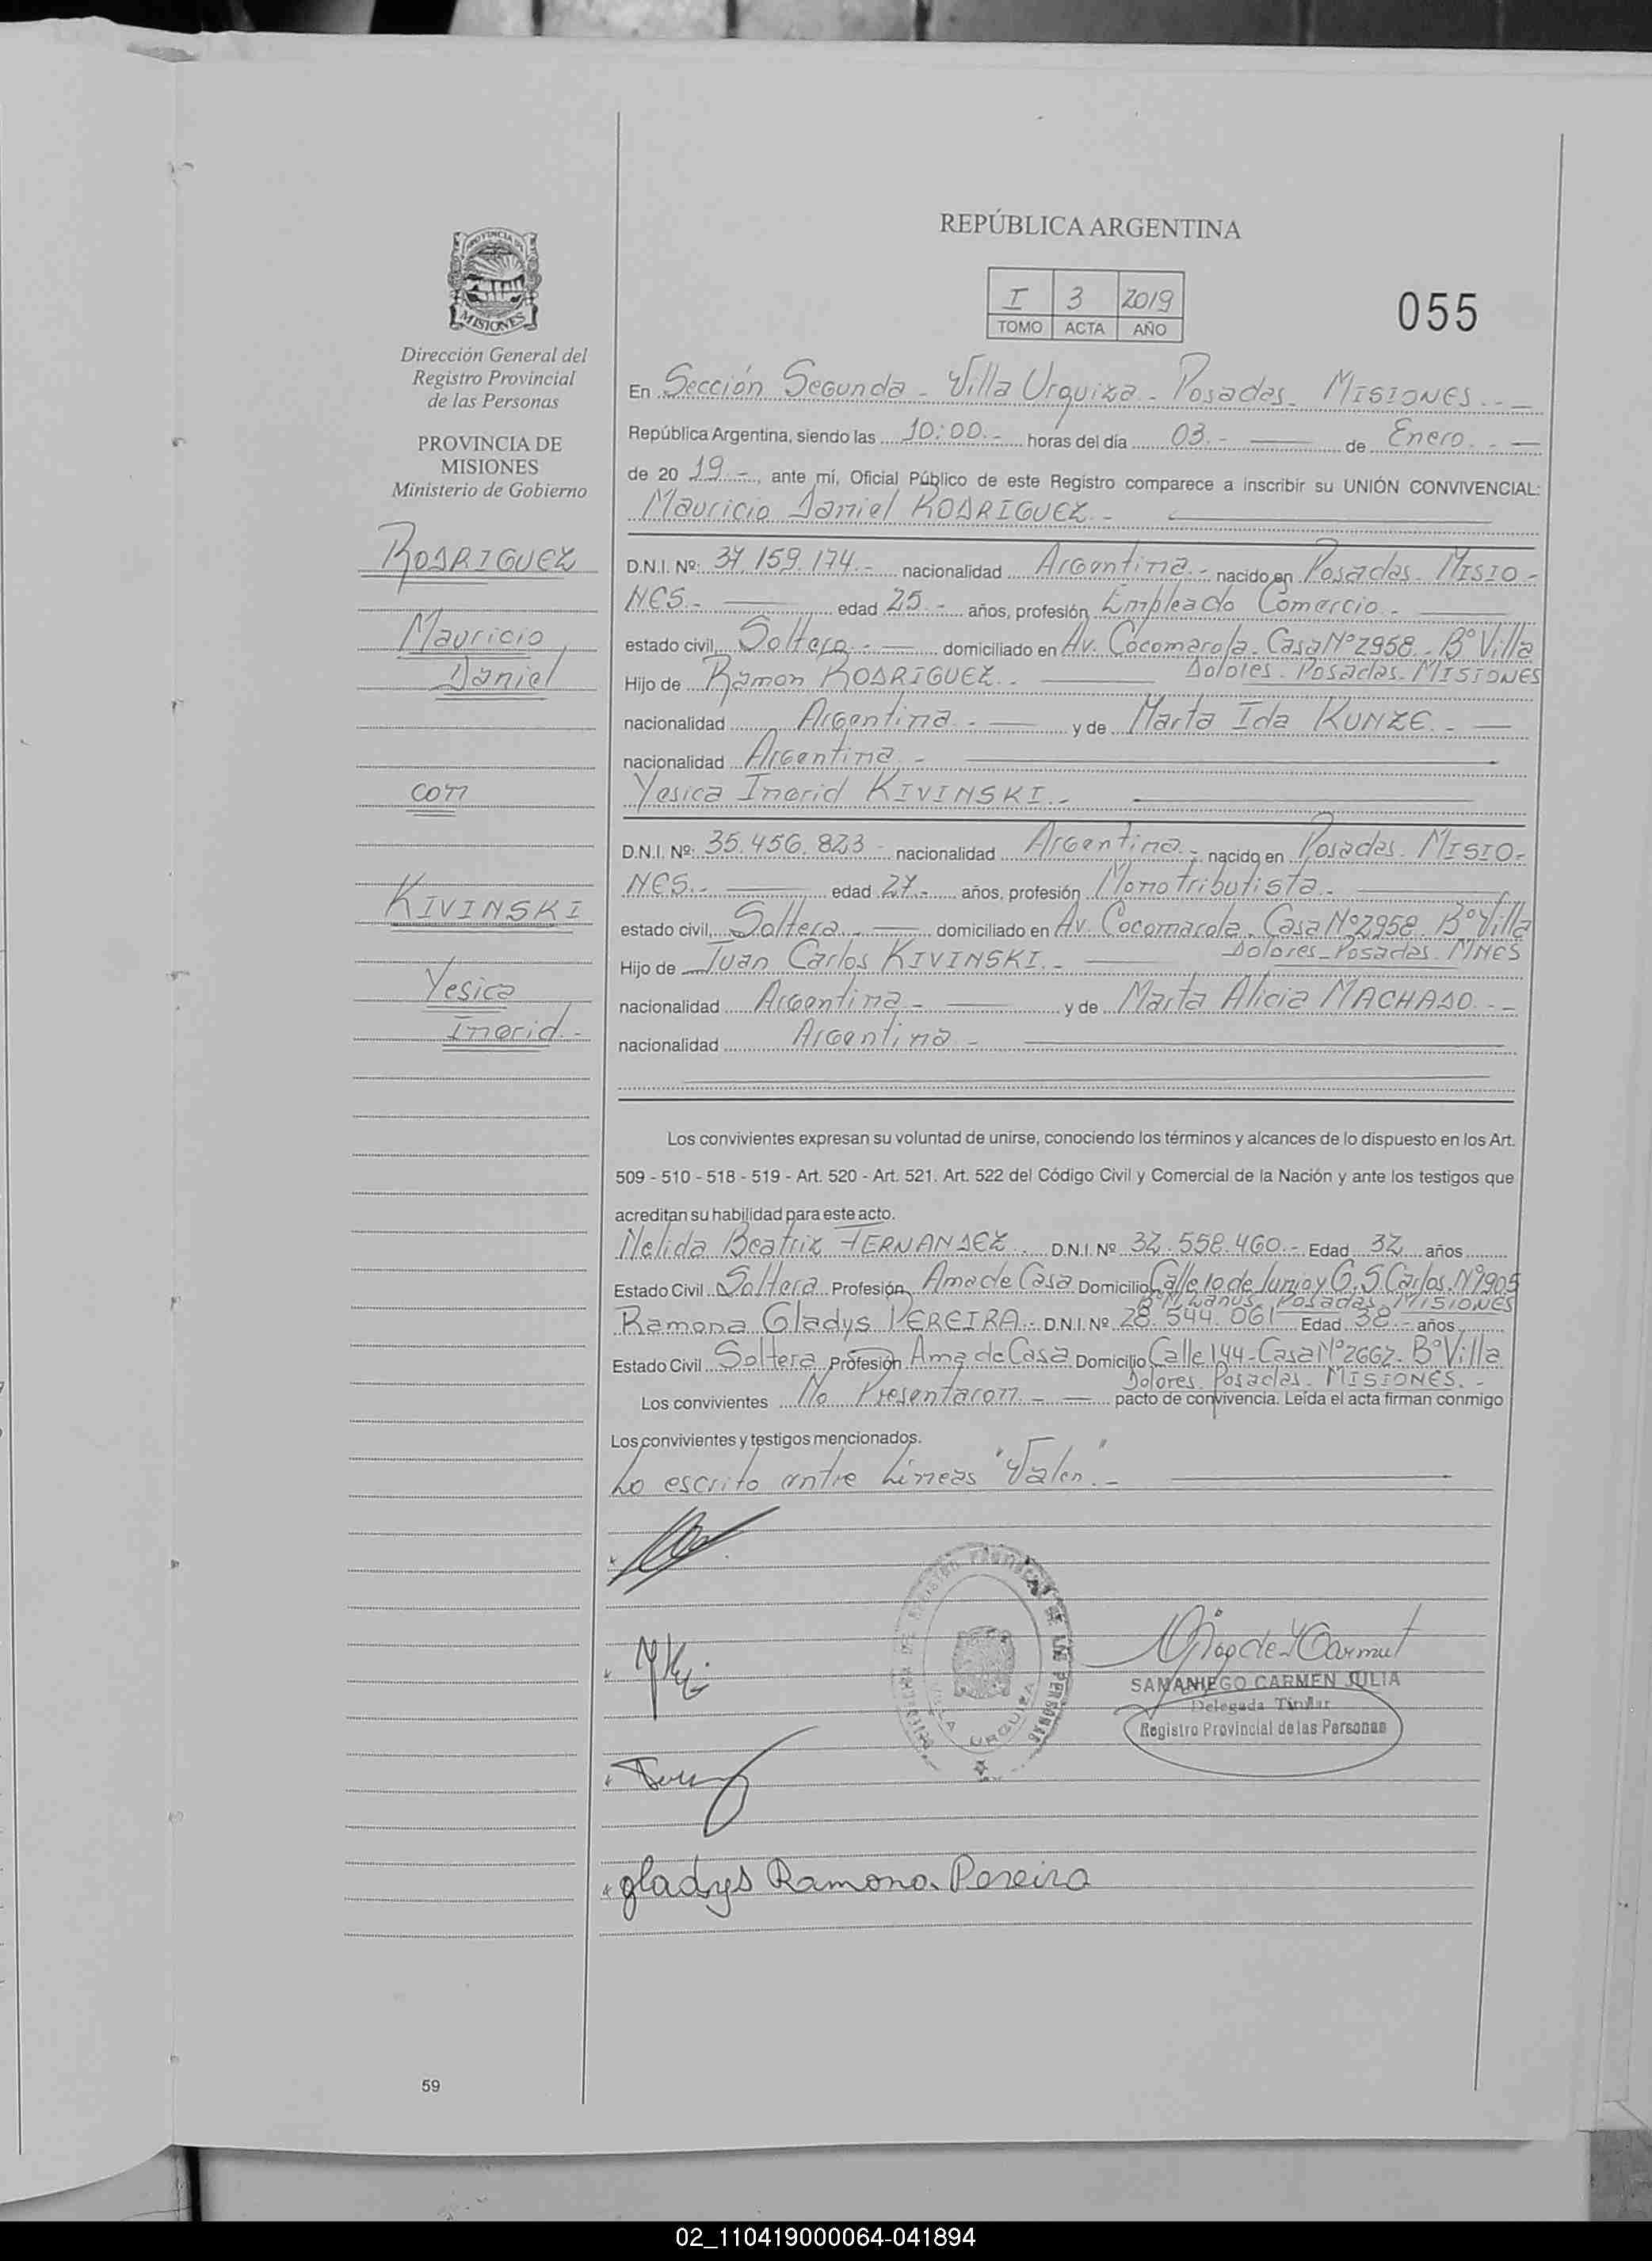 REPÚBLICA ARGENTINA
I 3 2019
TOMO ACTA AÑO
055
PROVINCIA DE
MISIONES
Dirección General del
Registro Provincial
de las Personas
PROVINCIA DE
MISIONES
Ministerio de Gobierno
RODRIGUEZ
Mauricio
Daniel
con
KIVINSKI
Yesica
Ingrid.-
En Sección Segunda - Villa Urquiza - Posadas - MISIONES.--
República Argentina, siendo las 10:00.- horas del día 03.- de Enero.-
de 20 19.-, ante mí, Oficial Público de este Registro comparece a inscribir su UNIÓN CONVIVENCIAL:
Mauricio Daniel RODRIGUEZ.-
D.N.I. Nº: 37.159.174.- nacionalidad Argentina.- nacido en Posadas - MISIO-
NES.- edad 25.- años, profesión Empleado Comercio.-
estado civil Soltero.- domiciliado en Av. Cocomarola. Casa Nº 2958.- Bº Villa
Dolores. Posadas. MISIONES
Hijo de Ramon RODRIGUEZ.-
nacionalidad Argentina.- y de Marta Ida KUNZE.-
nacionalidad Argentina.-
Yesica Ingrid KIVINSKI.-
D.N.I. Nº: 35.456.823- nacionalidad Argentina.- nacido en Posadas. MISIO-
NES.- edad 27.- años, profesión Monotributista.-
estado civil Soltera.- domiciliado en Av. Cocomarola. Casa Nº 2958. Bº Villa
Dolores - Posadas. MNES
Hijo de Juan Carlos KIVINSKI.-
nacionalidad Argentina.- y de Marta Alicia MACHADO.--
nacionalidad Argentina.-
Los convivientes expresan su voluntad de unirse, conociendo los términos y alcances de lo dispuesto en los Art.
509 - 510 - 518 - 519 - Art. 520 - Art. 521. Art. 522 del Código Civil y Comercial de la Nación y ante los testigos que
acreditan su habilidad para este acto.
Nelida Beatriz FERNANDEZ.. D.N.I. Nº 32.558.460.- Edad 32 años
Estado Civil Soltera Profesión Ama de Casa Domicilio Calle 10 de Junio y G. S. Carlos. Nº 7905
Posadas MISIONES
Ramona Gladys PEREIRA.- D.N.I. Nº 28.544.061 Edad 38.- años
Estado Civil Soltera Profesión Ama de Casa Domicilio Calle 144 - Casa Nº 2662.- Bº Villa
Dolores. Posadas. MISIONES.-
Los convivientes No Presentaron.- pacto de convivencia. Leída el acta firman conmigo
Los convivientes y testigos mencionados.
Lo escrito entre Lineas "Valen".-
VILLA URQUIZA
SAMANIEGO CARMEN JULIA
Delegada Titular
Registro Provincial de las Personas
gladys Ramona Pereira
59
02_110419000064-041894